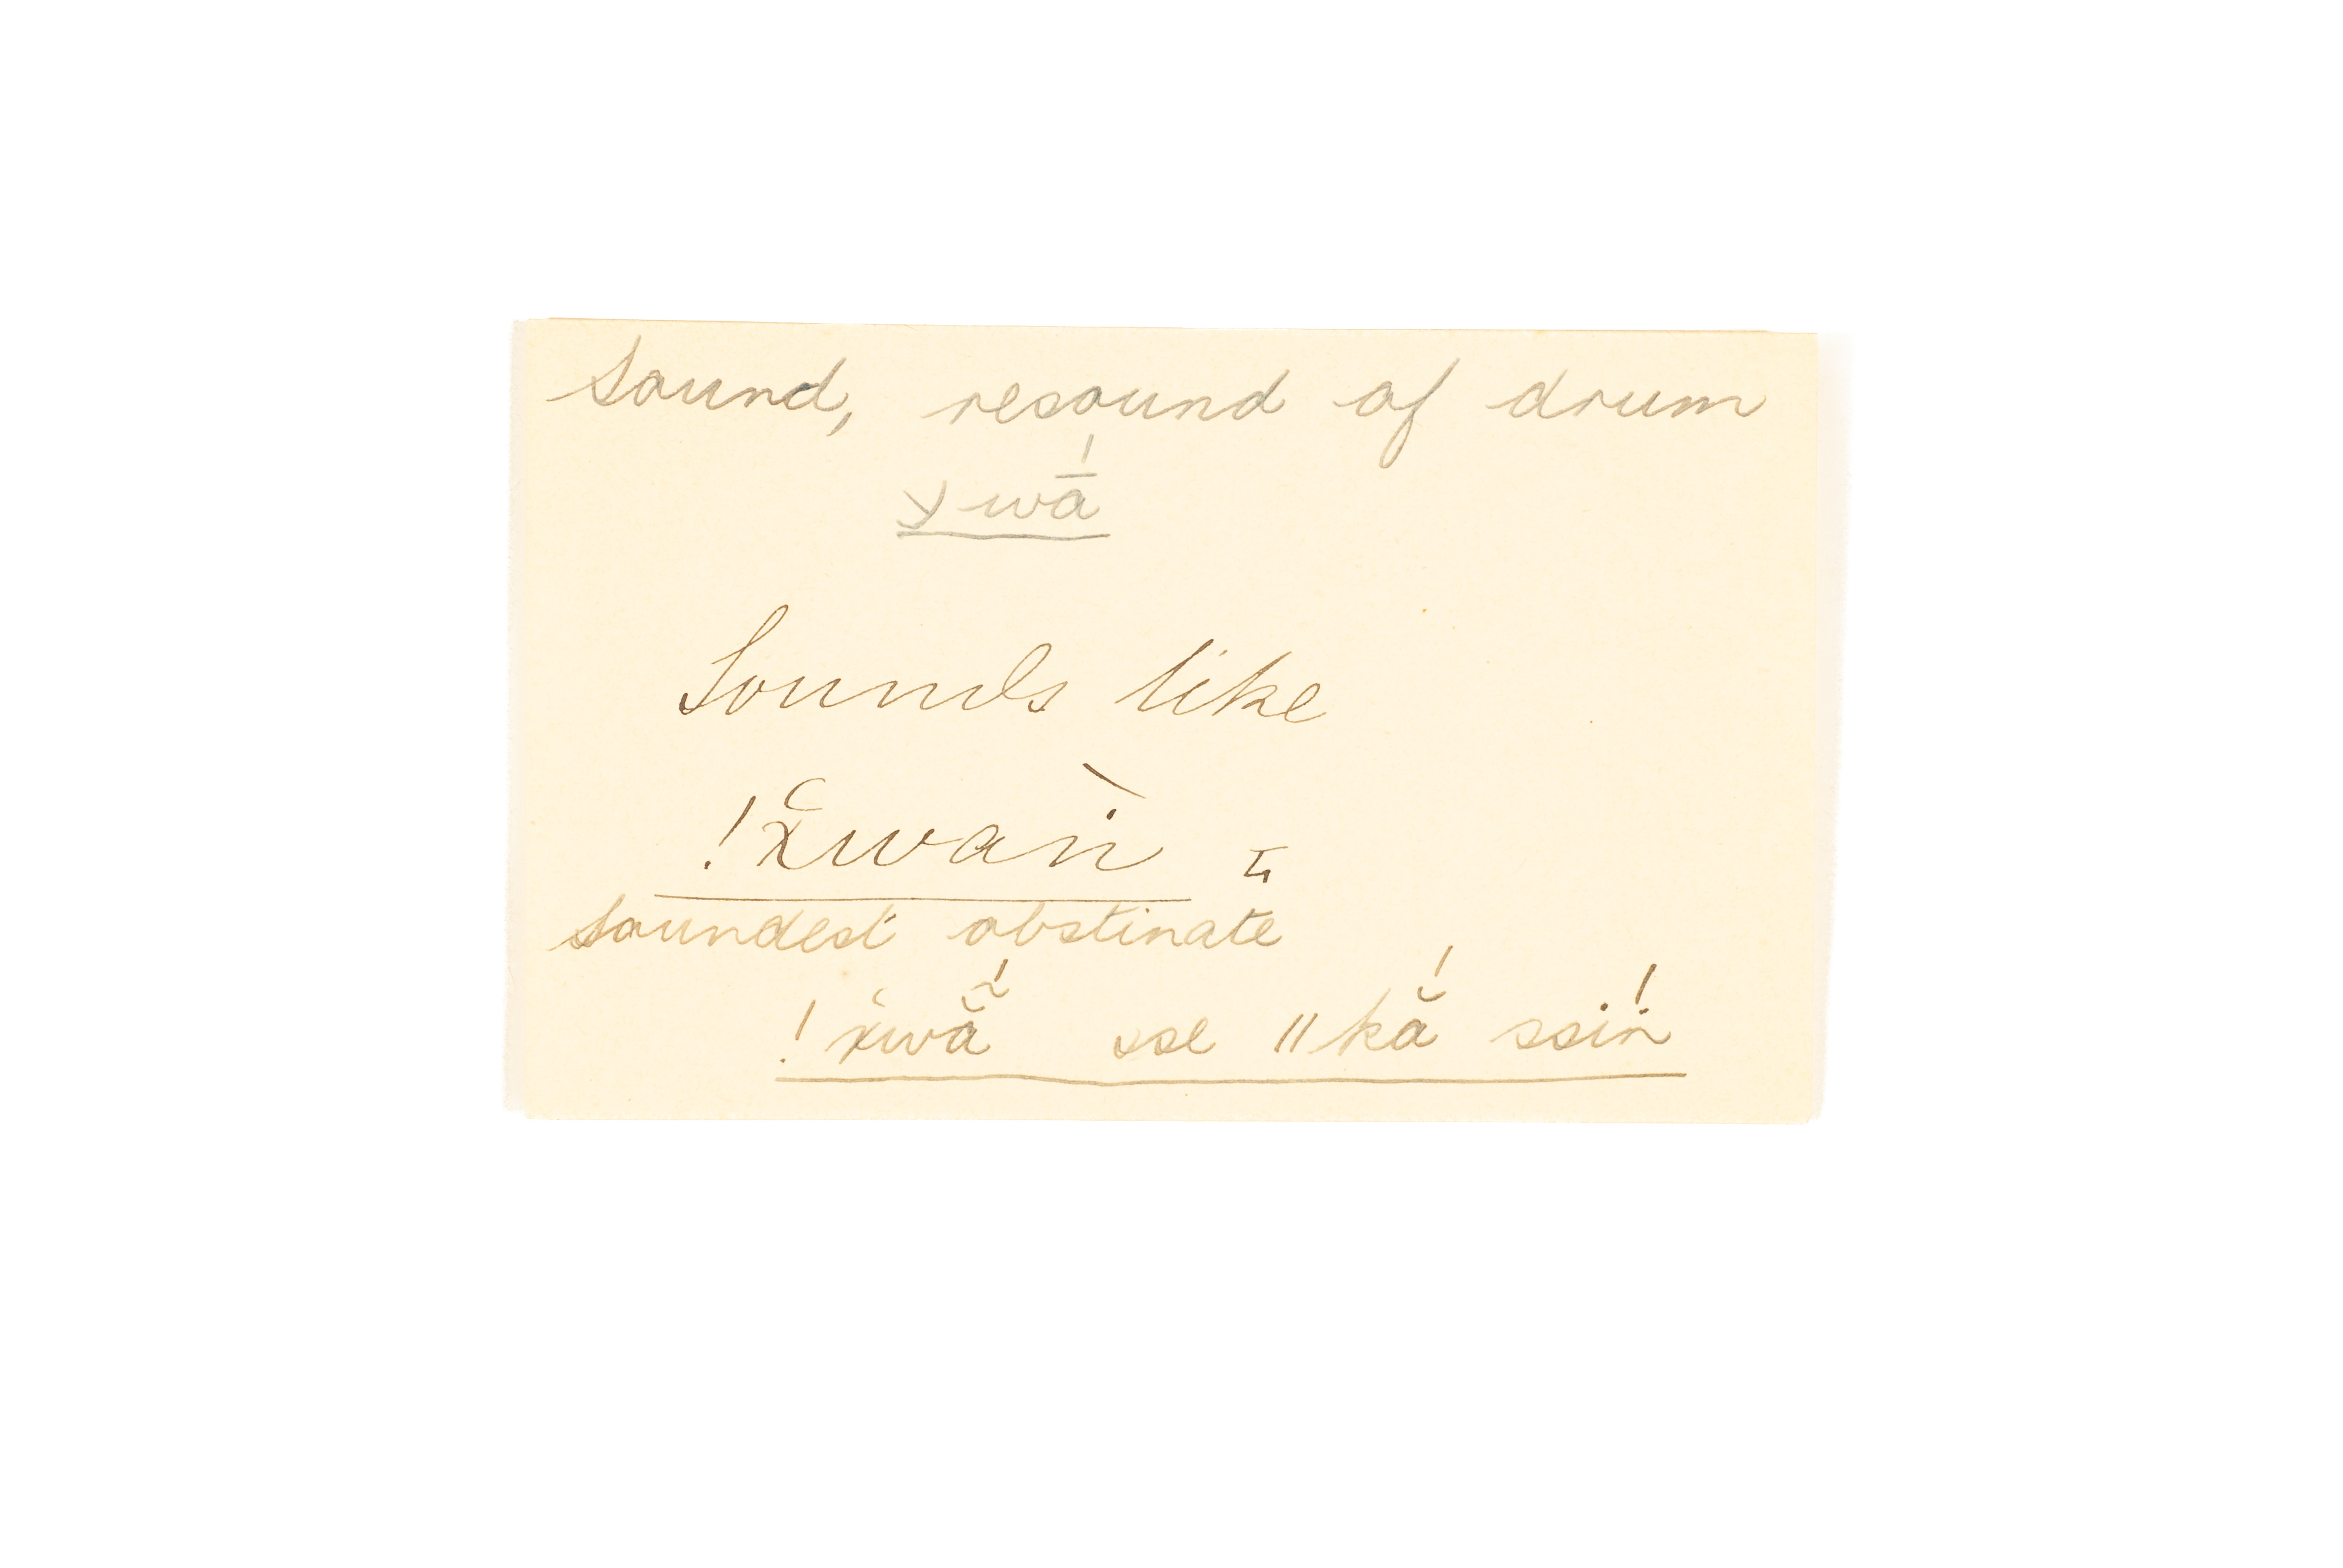 Sound, resound of drum
ɣwā́
Sounds like
!χ̔waṅ̀
soundest obstinate
!χ̔wã̆́ sse ǁkắ ssiṅ́